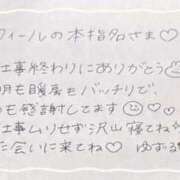 フィールの本指名さま♡
仕事終わりにありがとう
明も暖房もバッチリで、
も感謝してます♡
仕事ムリせず沢山寝てね
た会いに来てね♡ ゆずる